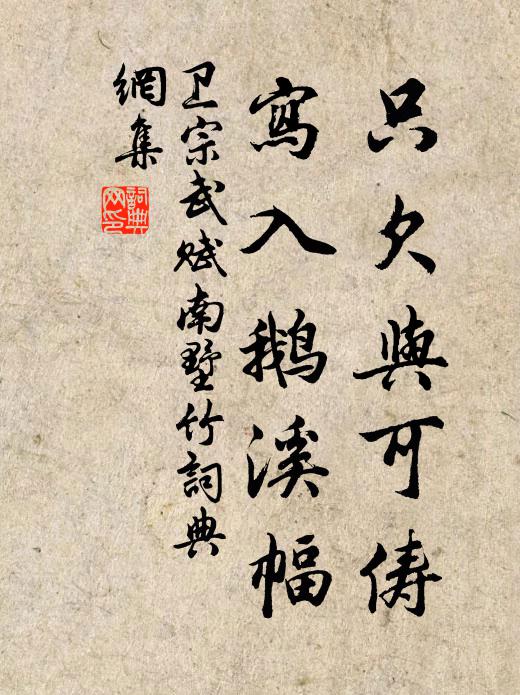 只欠與可儔
寫入鵝溪幅
卫宗武赋南墅竹詞典
網集
詞典网印